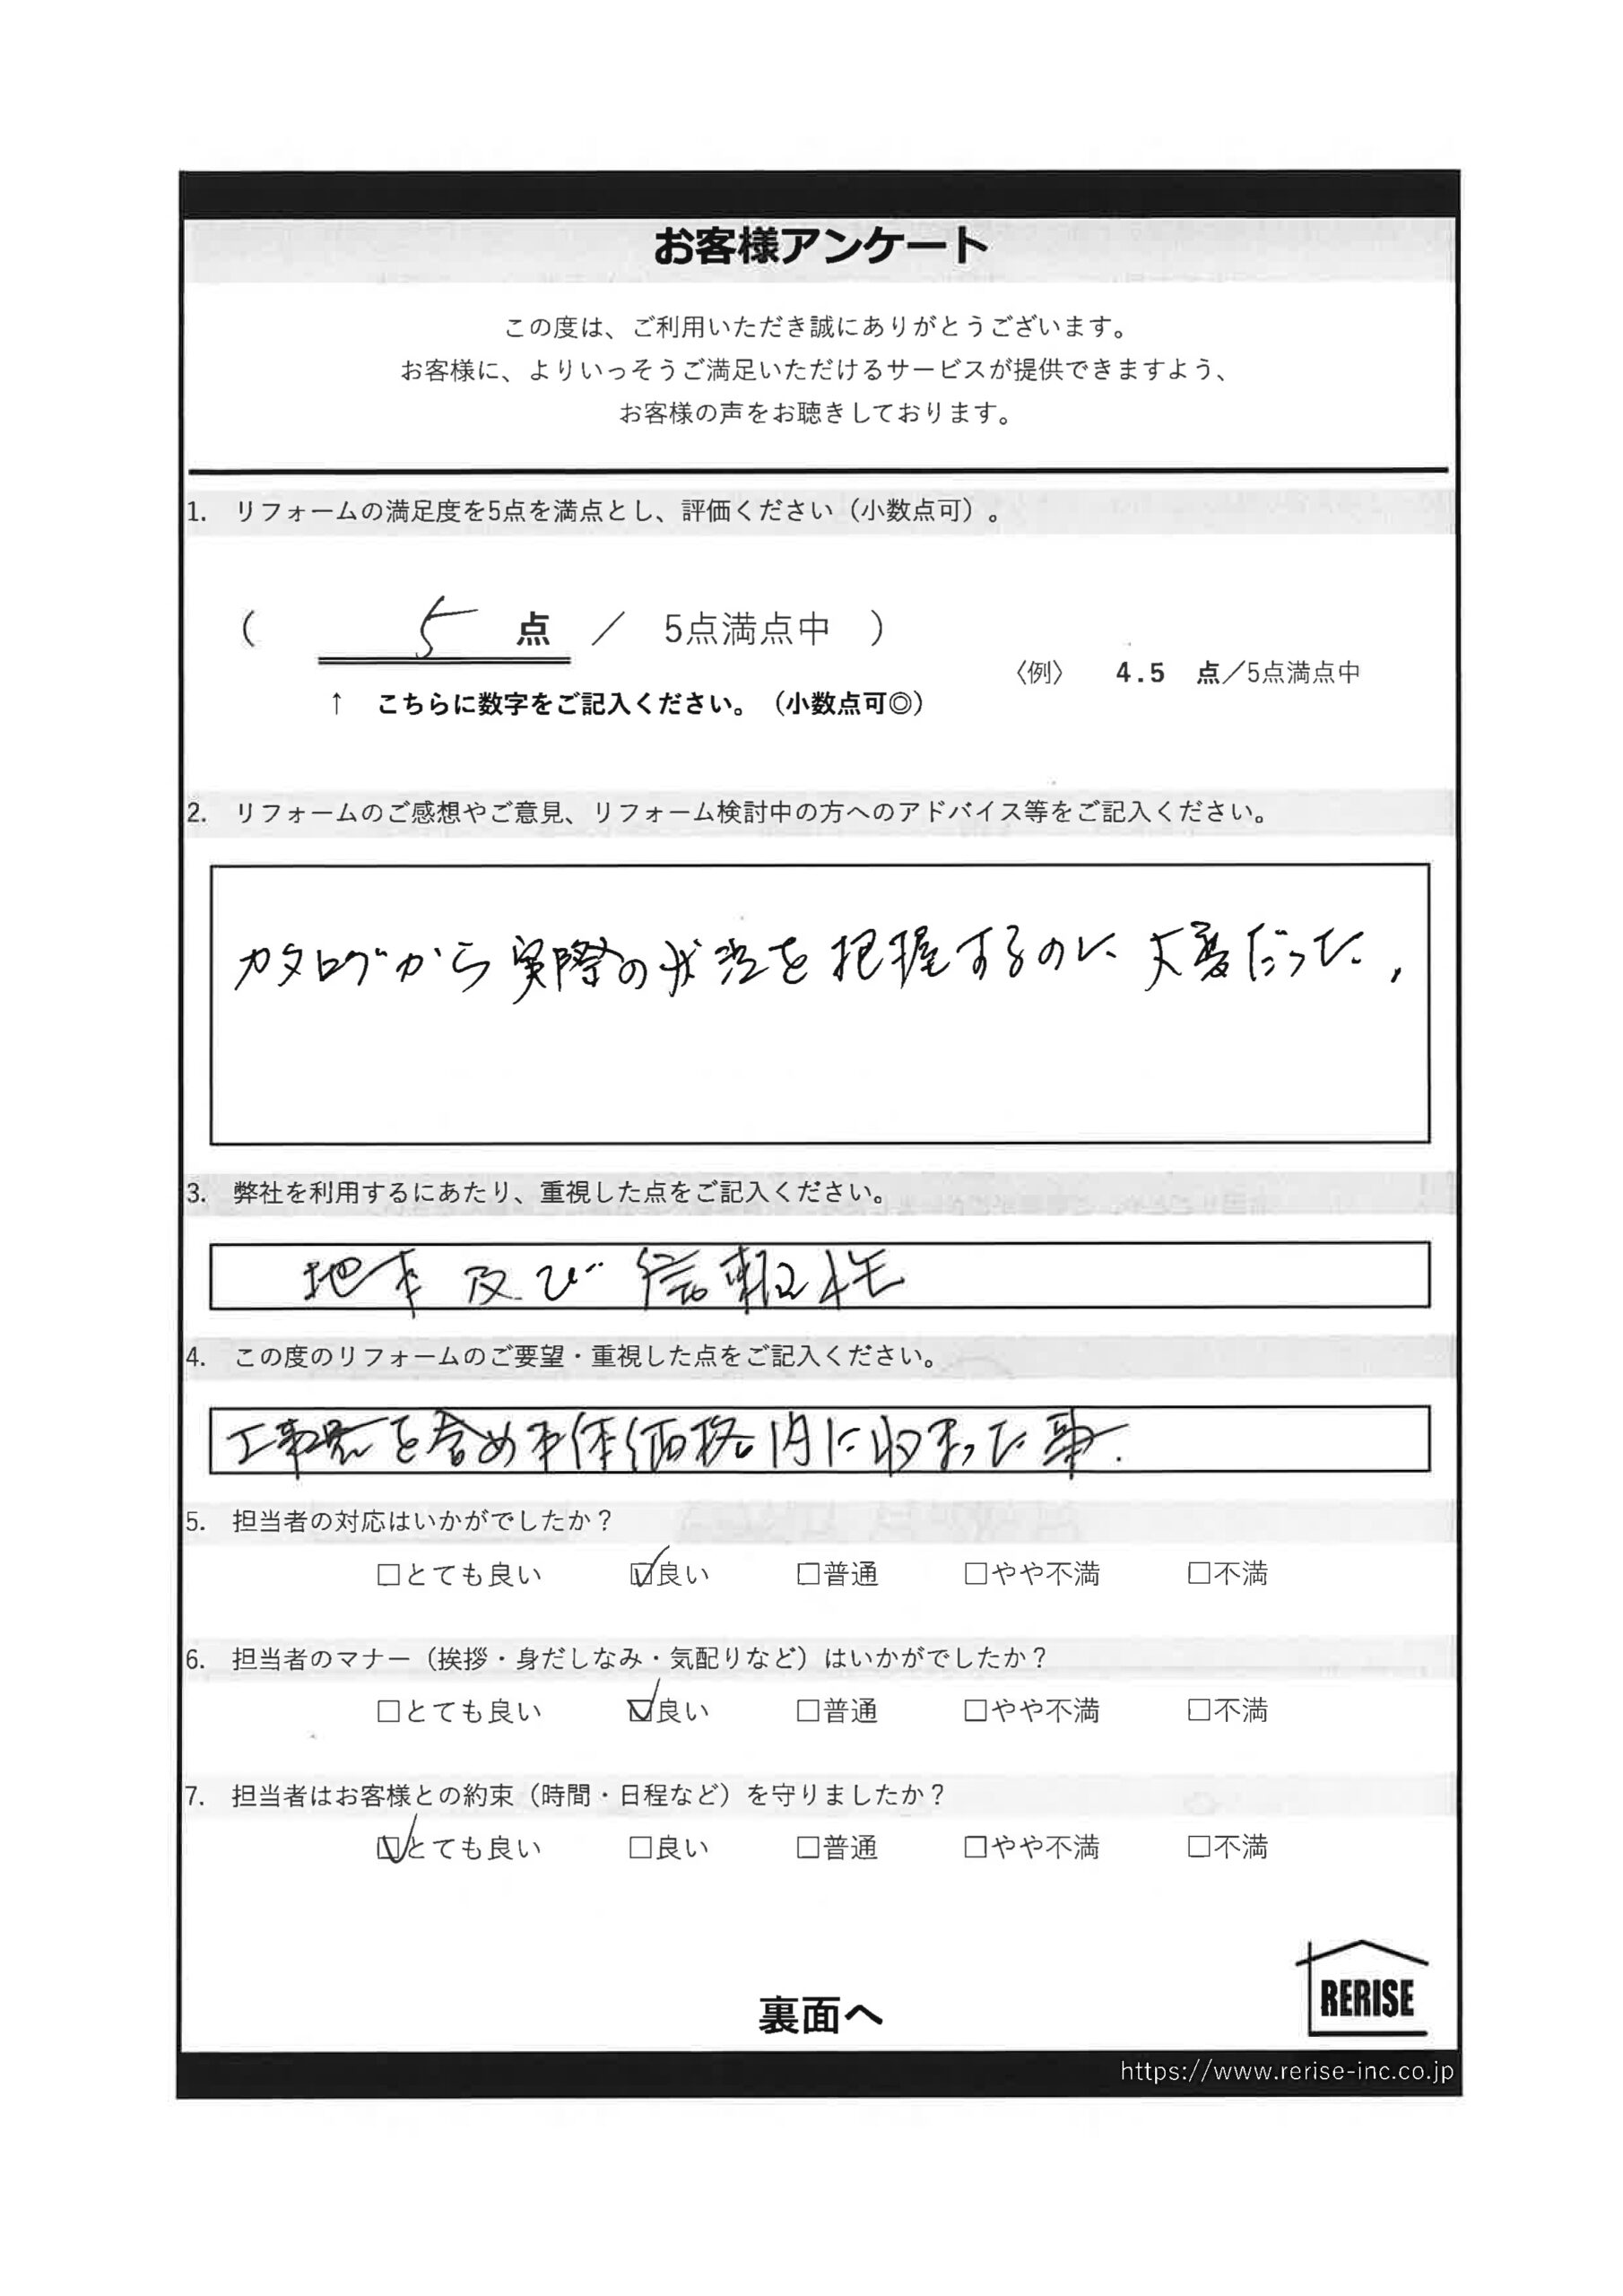 お客様アンケート
この度は、ご利用いただき誠にありがとうございます。
お客様に、よりいっそうご満足いただけるサービスが提供できますよう、
お客様の声をお聴きしております。
1. リフォームの満足度を5点を満点とし、評価ください（小数点可）。
（ 5 点 ／ 5点満点中 ）
〈例〉 4.5 点／5点満点中
↑ こちらに数字をご記入ください。（小数点可◎）
2. リフォームのご感想やご意見、リフォーム検討中の方へのアドバイス等をご記入ください。
カタログから実際の状況を把握するのに大変だった。
3. 弊社を利用するにあたり、重視した点をご記入ください。
地本及び信頼性
4. この度のリフォームのご要望・重視した点をご記入ください。
工事費を含め本体価格内に収まった事.
5. 担当者の対応はいかがでしたか？
□とても良い ☑良い □普通 □やや不満 □不満
6. 担当者のマナー（挨拶・身だしなみ・気配りなど）はいかがでしたか？
□とても良い ☑良い □普通 □やや不満 □不満
7. 担当者はお客様との約束（時間・日程など）を守りましたか？
☑とても良い □良い □普通 □やや不満 □不満
RERISE
裏面へ
https://www.rerise-inc.co.jp